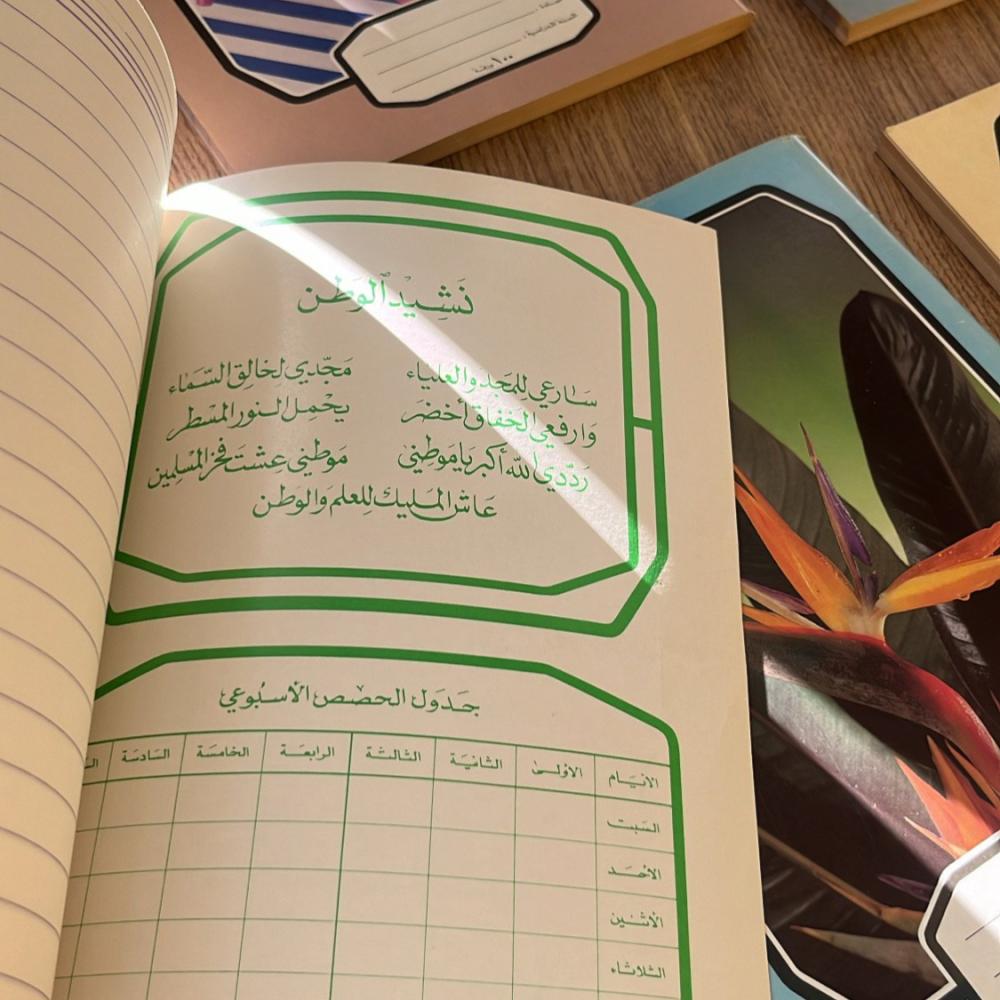 السنة الدراسية:
١٠٠ ورقة
نَشيد الوَطَن
سَارعي لِلمَجد والعَلياء مَجّدي لِخالِق السَّمَاء
وَارفعي الخفّاق أخضَر يحْمِل النور المسَطر
رَدّدي الله أكبر يا مَوطِني مَوطني عِشتَ فخر المسْلِمين
عَاش المليك لِلعلم والوَطن
جَدوَل الحصَص الأسبُوعي
الأيَام الأولى الثانيَة الثالثة الرابعَة الخامسَة السَادسَة
السَبت
الأحَد
الأثنين
الثلاثاء